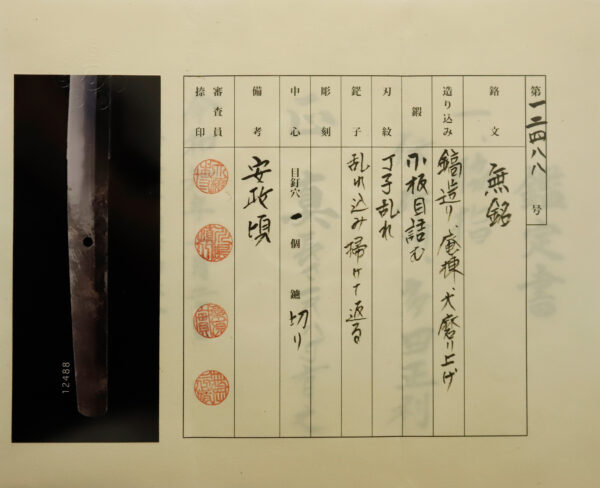 第一二四八八号
銘文 無銘
造り込み 鎬造り、庵棟、大磨り上げ
鍛 小板目詰む
刃紋 丁子乱れ
鋩子 乱れ込み掃けて返る
彫刻
中心 目釘穴 一 個 鑢 切り
備考 安政頃
審査員捺印
12488